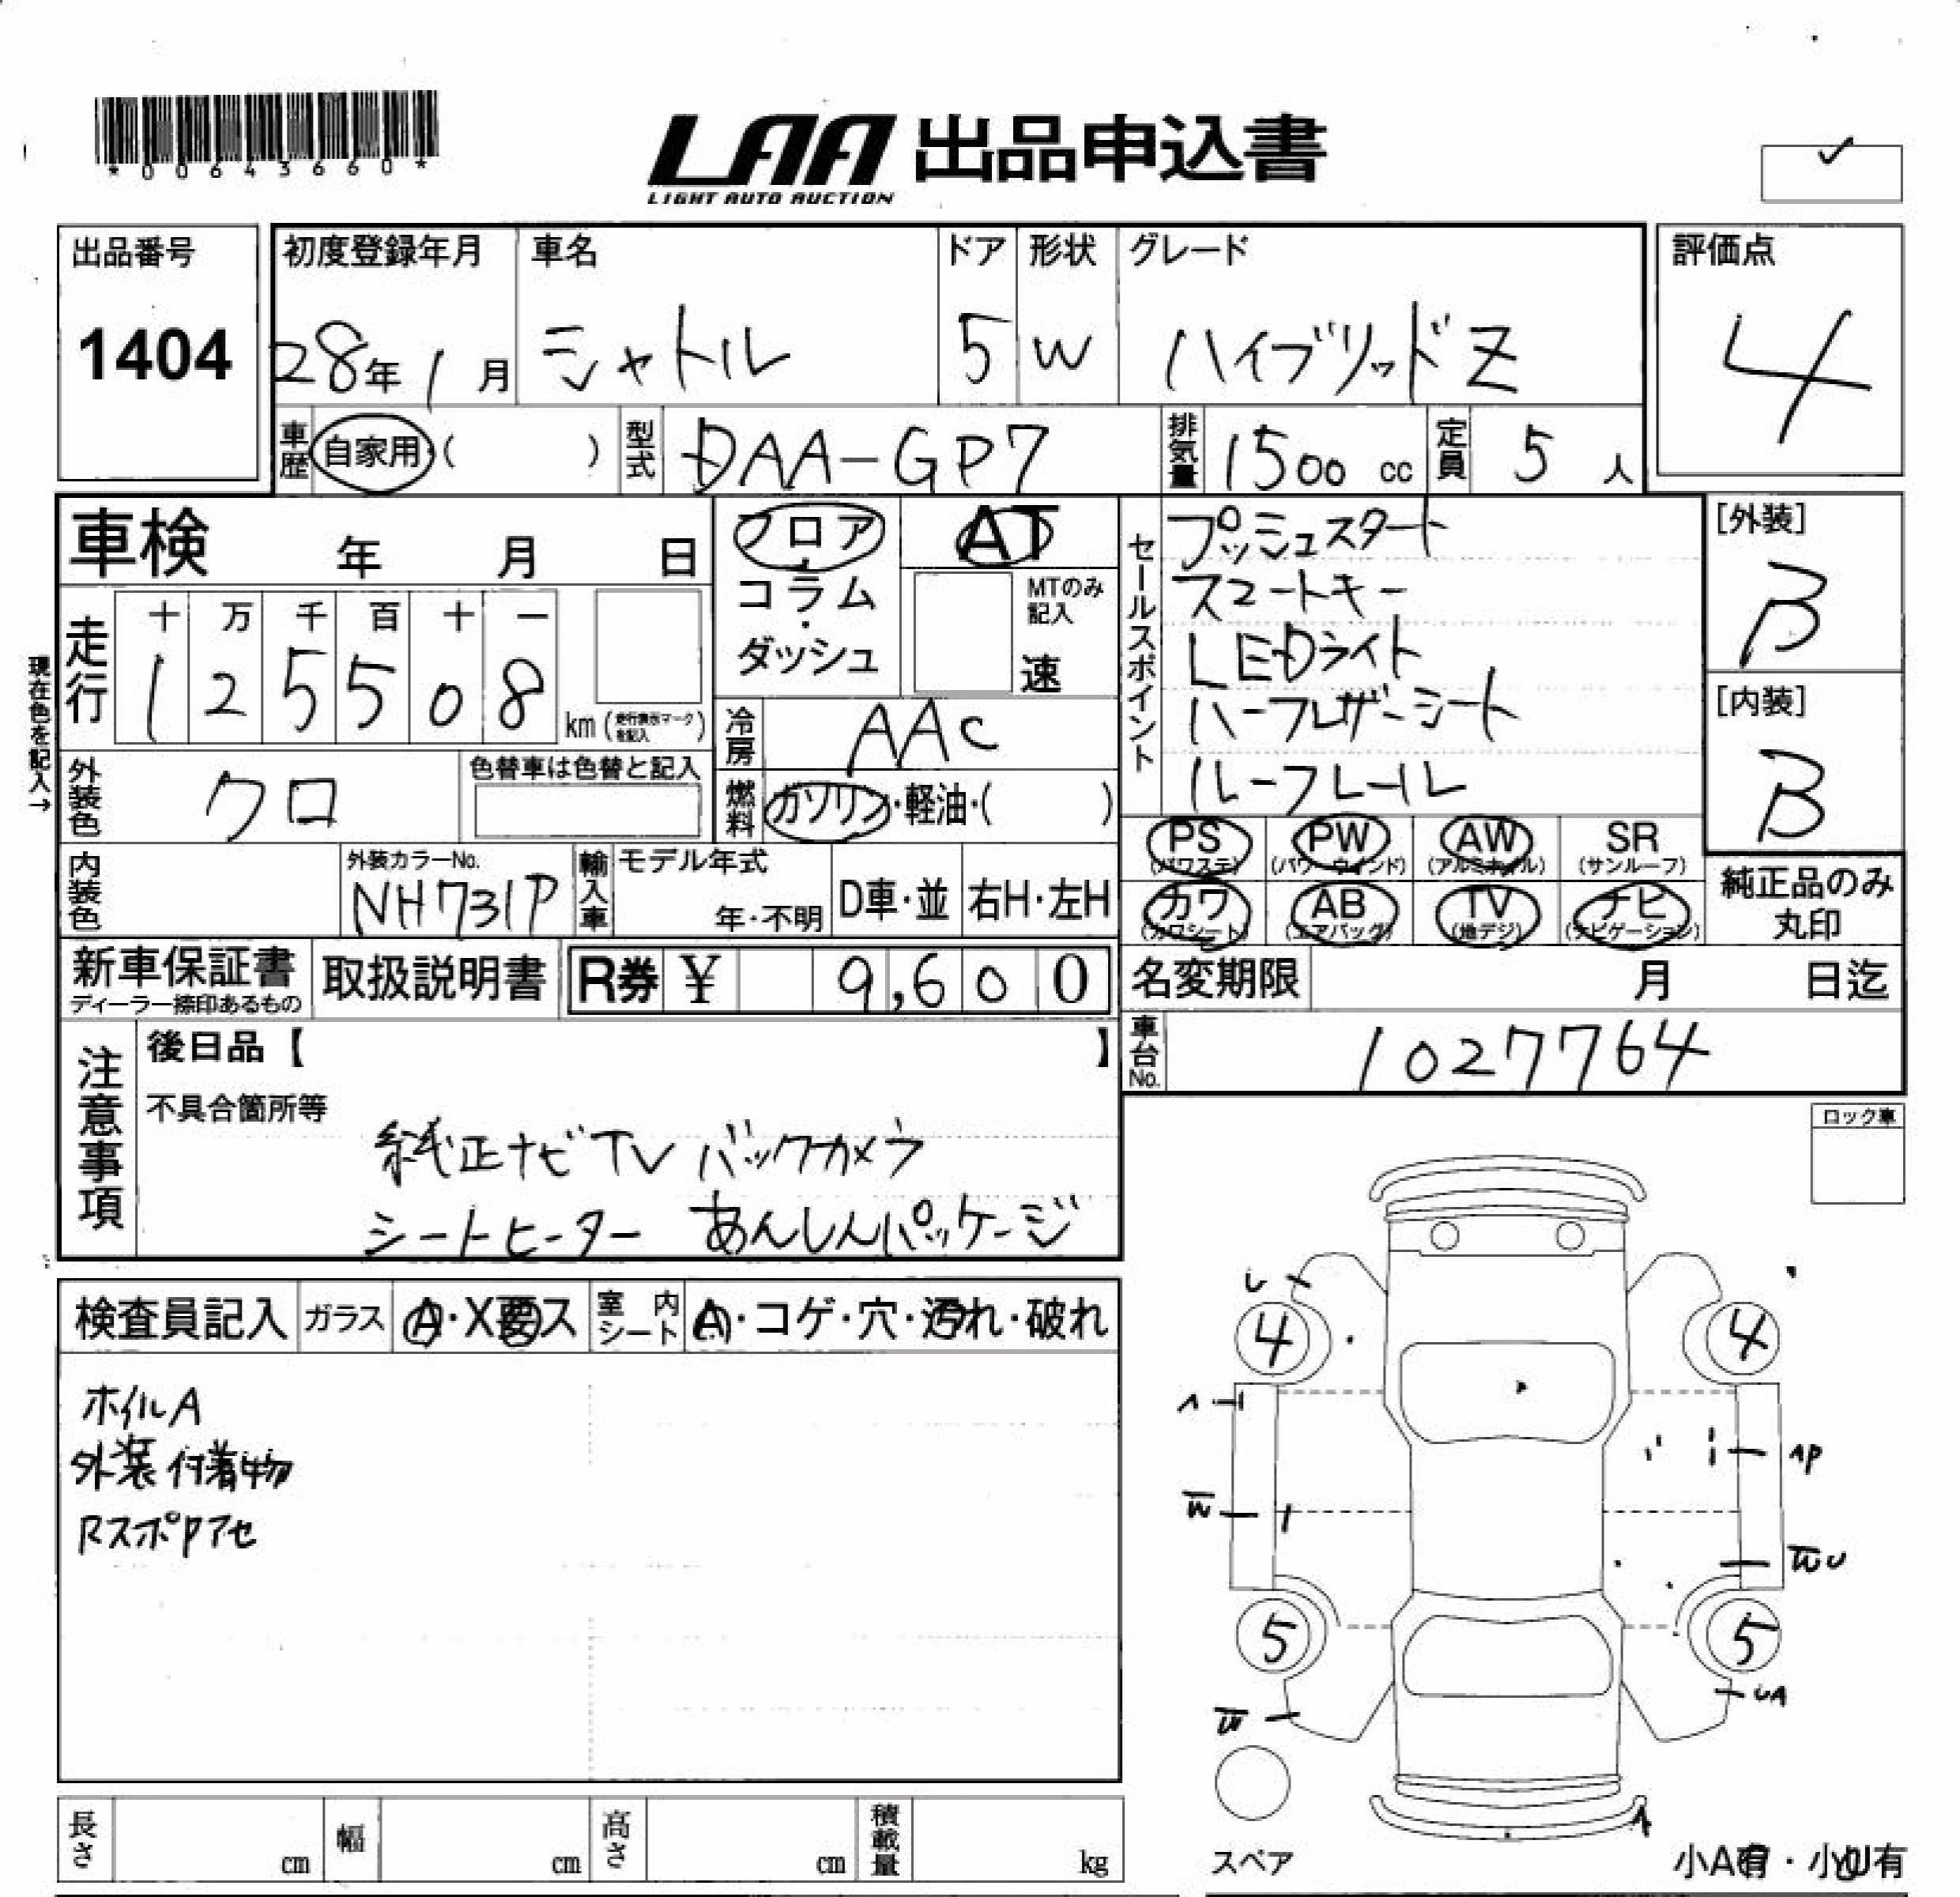 *00643660*
LAA 出品申込書
LIGHT AUTO AUCTION
出品番号
1404
初度登録年月
28年1月
車名
シャトル
ドア
5
形状
W
グレード
ハイブリッドZ
評価点
4
車歴
自家用 ( )
型式
DAA-GP7
排気量
1500 cc
定員
5 人
車検 年 月 日
フロア
コラム
・
ダッシュ
AT
MTのみ
記入
速
セールスポイント
プッシュスタート
スマートキー
LEDライト
ハーフレザーシート
ルーフレール
[外装]
B
[内装]
B
現在色を記入→
走行
十 万 千 百 十 一
1 2 5 5 0 8
km (走行表示マークを記入)
冷房
AAC
燃料
ガソリン・軽油・( )
外装色
クロ
色替車は色替と記入
内装色
外装カラーNo.
NH731P
輸入車
モデル年式
年・不明
D車・並
右H・左H
PS
(パワステ)
PW
(パワーウインド)
AW
(アルミホイル)
SR
(サンルーフ)
カワ
(カワシート)
AB
(エアバッグ)
TV
(地デジ)
ナビ
(ナビゲーション)
純正品のみ
丸印
新車保証書
ディーラー捺印あるもの
取扱説明書
R券 ¥ 9,600
名変期限 月 日迄
車台No.
1027764
注意事項
後日品【 】
不具合箇所等
純正ナビTV バックカメラ
シートヒーター あんしんパッケージ
ロック車
検査員記入
ガラス
A・X要ス
室内シート
A・コゲ・穴・汚れ・破れ
ホイルA
外装付着物
RスポPアセ
U
4
4
A
AP
W
WU
5
5
UA
W
A
スペア
小A有・小U有
長さ cm
幅 cm
高さ cm
積載量 kg